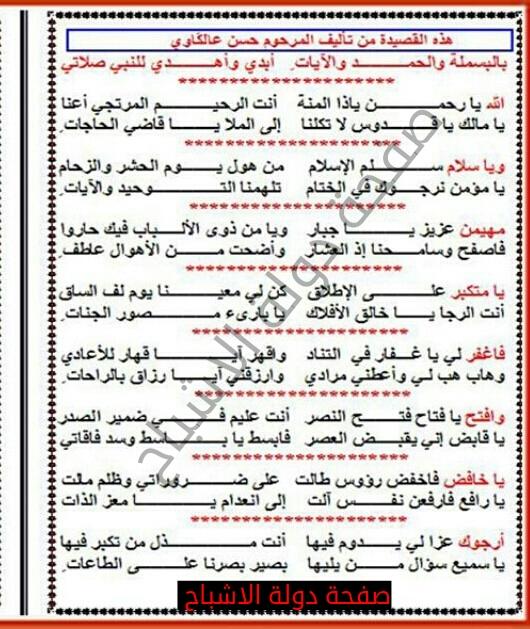 هذه القصيدة من تأليف المرحوم حسن عالكاوي
بالبسملة والحمد والآيات. أبدي وأهدي للنبي صلاتي
******************
الله يا رحمن ياذا المنة أنت الرحيم المرتجي أعنا
يا مالك يا قدوس لا تكلنا إلى الملا يا قاضي الحاجات.
******************
ويا سلام سلم الإسلام من هول يوم الحشر والزحام
يا مؤمن نرجوك في الختام تلهمنا التوحيد والآيات.
******************
مهيمن عزيز يا جبار ويا من ذوى الألباب فيك حاروا
فاصفح وسامحنا إذ العثار وأضحت من الأهوال عاطف.
******************
يا متكبر على الإطلاق كن لي معينا يوم لف الساق
أنت الرجا يا خالق الأفلاك يا بارىء مصور الجنات.
******************
فاغفر لي يا غفار في التناد واقهر أيا قهار للأعادي
وهاب هب لي وأعطني مرادي وارزقني أيا رزاق بالراحات.
******************
وافتح يا فتاح فتح النصر أنت عليم في ضمير الصدر
يا قابض إني يقبض العصر فابسط يا باسط وسد فاقاتي
******************
يا خافض فاخفض رؤوس طالت على ضروراتي وظلم مالت
يا رافع فارفعن نفس آلت إلى انعدام يا معز الذات
******************
أرجوك عزا لي يدوم فيها أنت مذل من تكبر فيها
يا سميع سؤال من يليها بصير بصرنا على الطاعات.
صفحة دولة الاشباح
صفحة دولة الاشباح